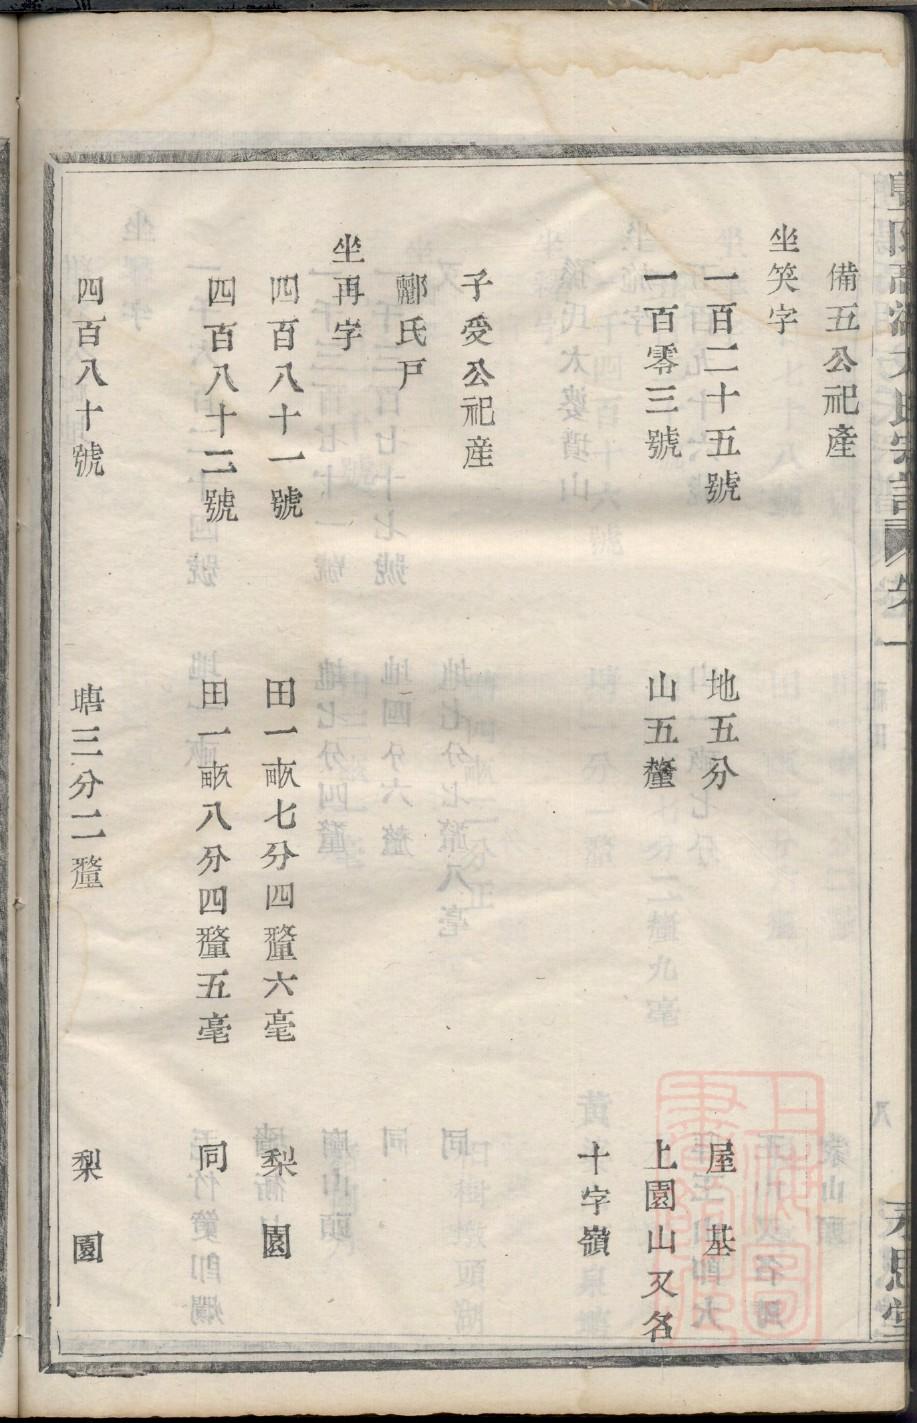 氏宗譜 卷一 思堂
備五公祀產
坐笑字
一百二十五號 地五分 屋基
一百零三號 山五釐 上園山又名
十字嶺
子愛公祀産
酈氏戶
坐再字
四百八十一號 田一畝七分四釐六毫 梨園
四百八十二號 田一畝八分四釐五毫 同
四百八十號 塘三分二釐 梨園